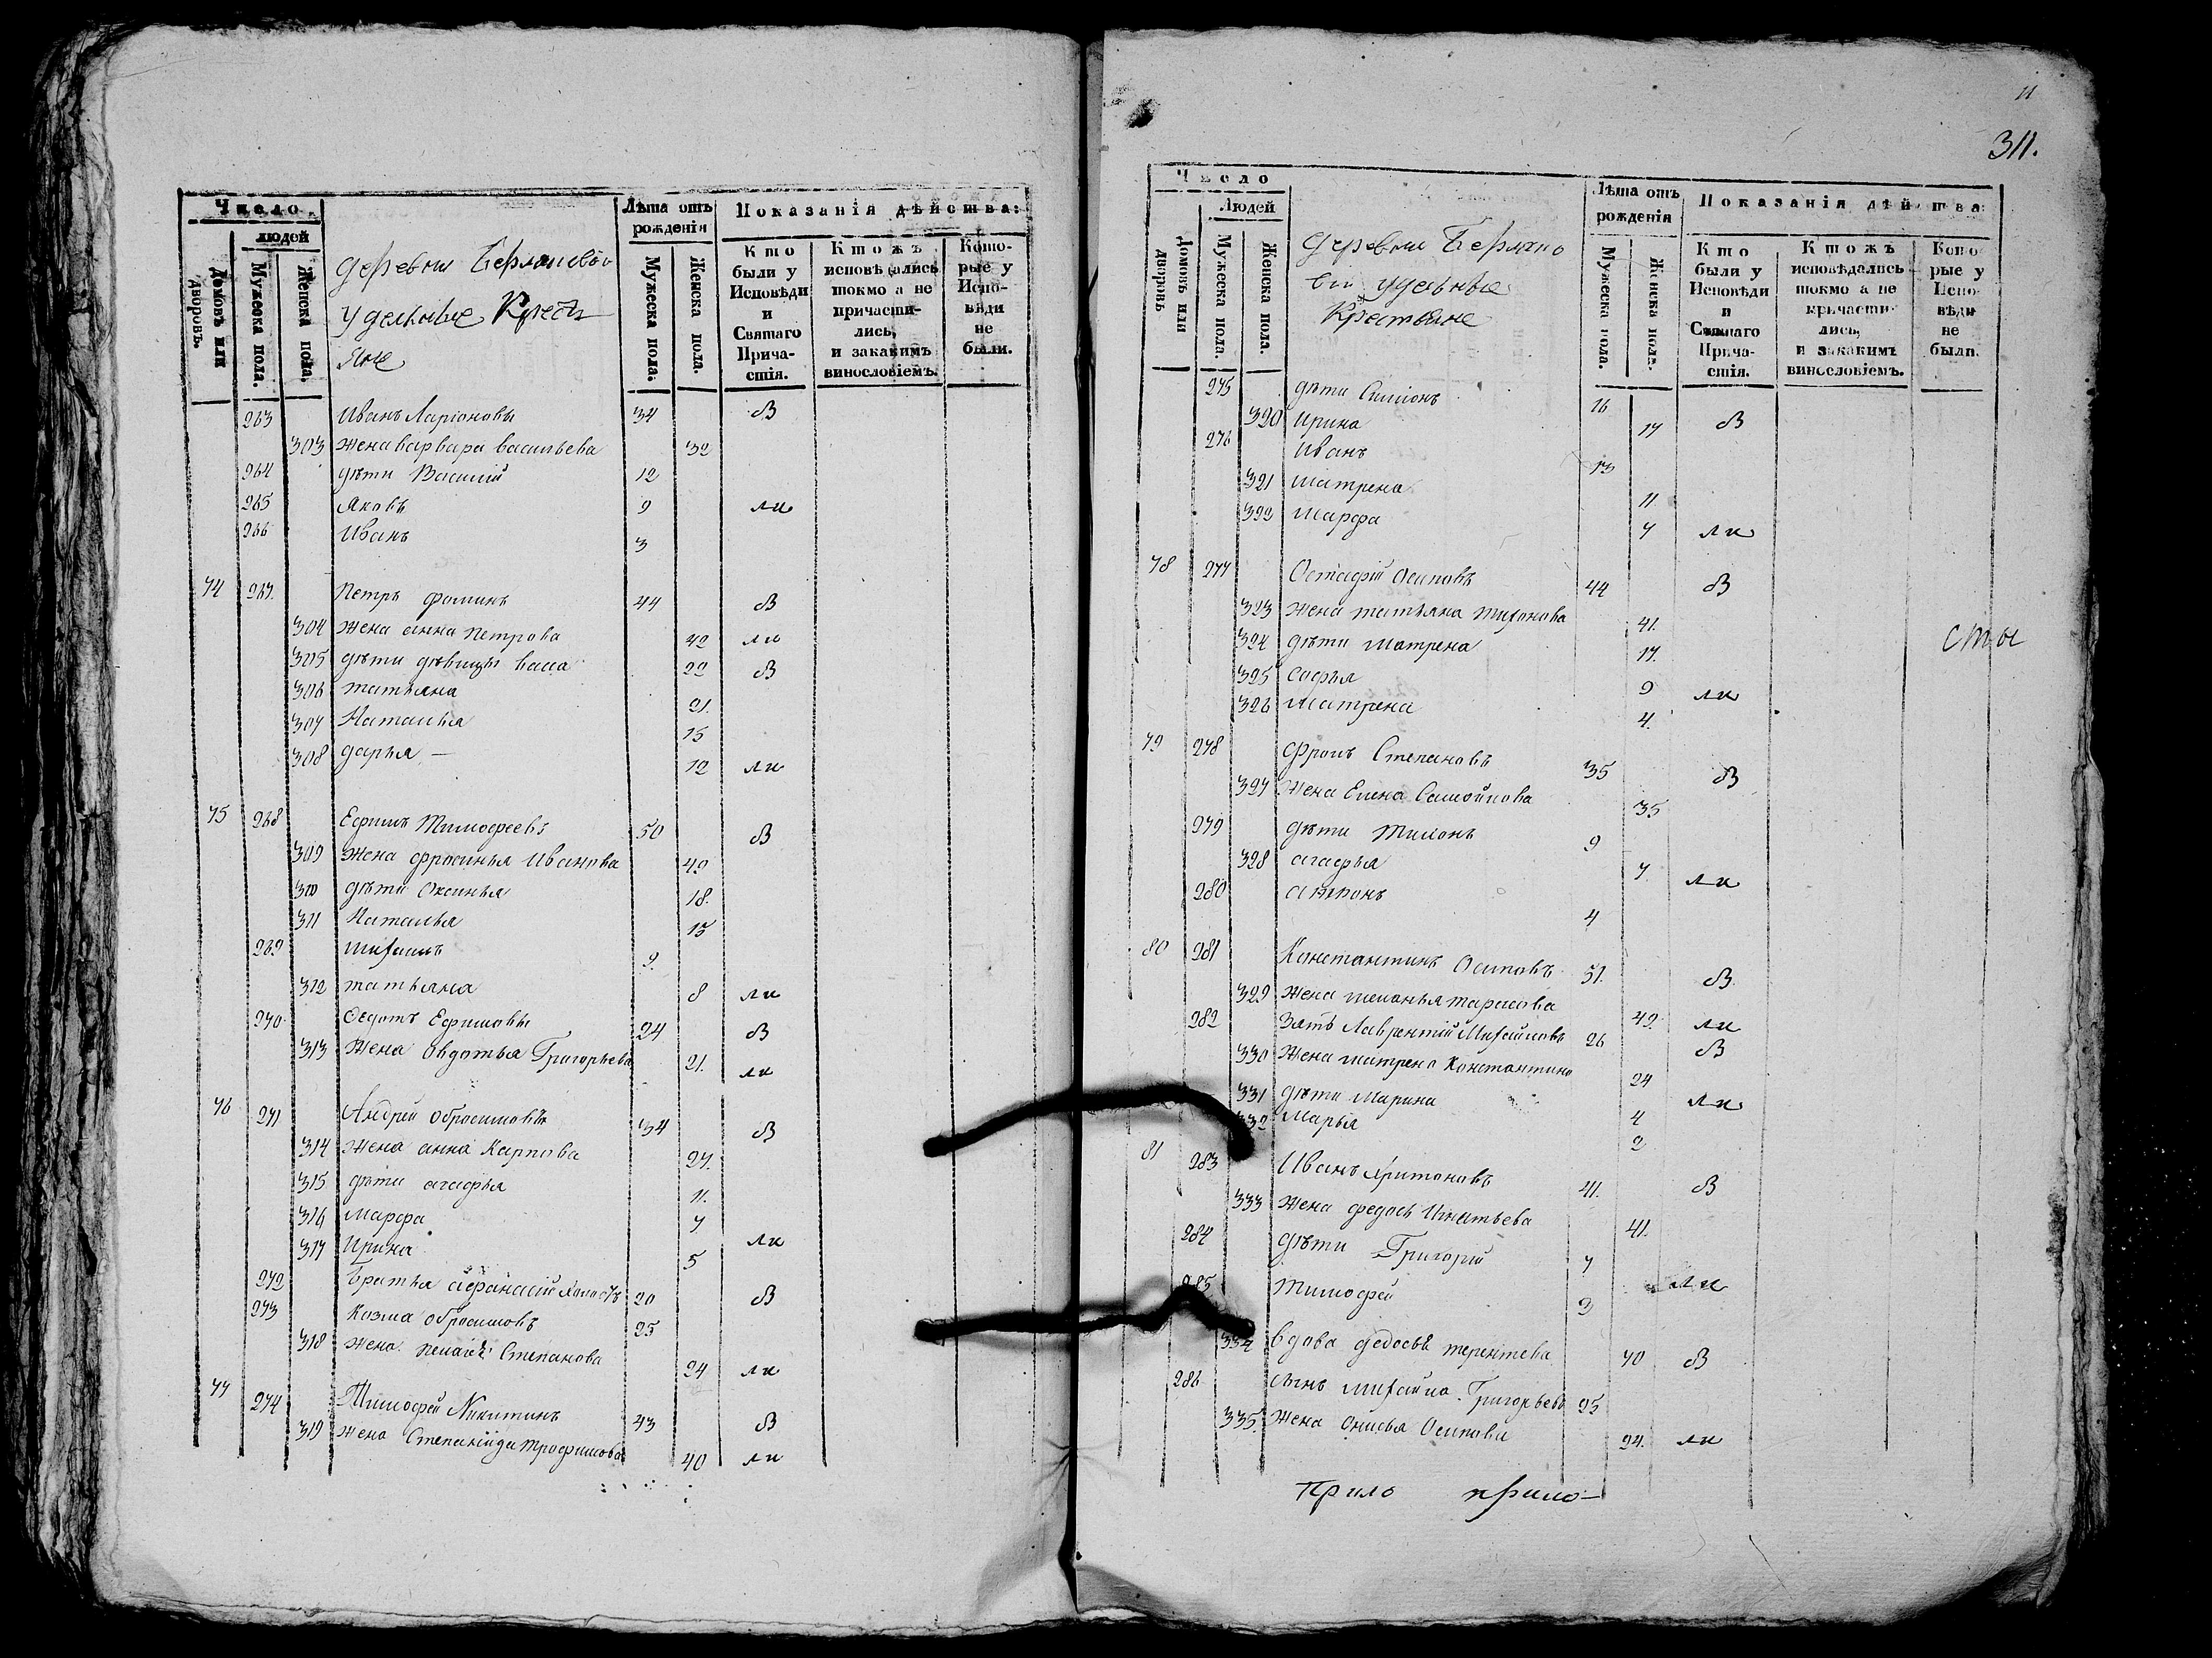 Число.
людей
Домовъ или дворовъ.
Мужеска пола.
Женска пола.
деревни
удельные Кресть
яне
Лѣта отъ рожденія
Мужеска пола.
Женска пола.
Показанія дѣйства:
Кто были у Исповѣди и Святаго Причастія.
Ктожъ исповѣдались токмо а не причастились, и закакимъ винословіемъ.
Которые у Исповѣди не были.
263 Иванъ Ларіоновъ 34 в
303 Жена варвара васильева 32
264 дѣти Василій 12
265 Яковъ 9 ли
266 Иванъ 3
74 267 Петръ фоминъ 44 в
304 Жена анна петрова 42 ли
305 дѣти дѣвицы васса 22 в
306 татьяна 21.
307 Наталья 15
308 дарья — 12 ли
75 268 Ефимъ Тимофеевъ 50 в
309 Жена фросинья Иванова 49
310 дѣти Оксинья 18.
311 Наталья 15
269 михаилъ 9.
312 татьяна 8 ли
270 Федотъ Ефимовъ 24 в
313 Жена Овдотья Григорьева 21. ли
76 271 Андрей обросимовъ 34 в
314 Жена анна Карпова 27.
315 дѣти агафья 11.
316 марфа 7
317 Ирина 5 ли
272 Братья афанасий холостъ 20 в
273 Козма обросимовъ 25
318 Жена пелагея Степанова 24 ли
77 274 Тимофей Никитинъ 43 в
319 Жена Степанида трофимова 40 ли
11
311.
Число
Людей
Домовъ или дворовъ
Мужеска пола.
Женска пола.
деревни
удельные
Крестьяне
Лѣта отъ рожденія
Мужеска пола.
Женска пола.
Показанія дѣйства
Кто были у Исповѣди и Святаго Причастія.
Ктожъ исповѣдались токмо а не причастились, и закакимъ винословіемъ.
Которые у Исповѣди не были.
275 дѣти Симіонъ 16
320 Ирина 17 в
276 Иванъ 13
321 матрена 11
322 марфа 7 ли
78 277 Остафій Осиповъ 44 в
323 Жена татьяна тихонова 41.
324 дѣти матрена 17.
сты
325 софья 9 ли
326 матрена 4.
79 278 Фролъ Степановъ 35 в
327 Жена Елена Самойлова 35
279 дѣти 9
328 агафья 7. ли
280 антонъ 4
80 281 Константинъ Осиповъ 51. в
329 Жена меланья тарасова 49. ли
282 Зять Лаврентій Михайловъ 26 в
330 Жена матрена Константино 24
331 дѣти Марина 4 ли
332 Марья 2
81 283 Иванъ Хритоновъ 41. в
333 Жена федось Игнатьева 41.
284 дѣти Григорій 7
285 Тимофей 3 ли
334 вдова федосья терентева 70 в
286 сынъ михайла Григорьевъ 25
335. Жена Онисья Осипова 24. ли